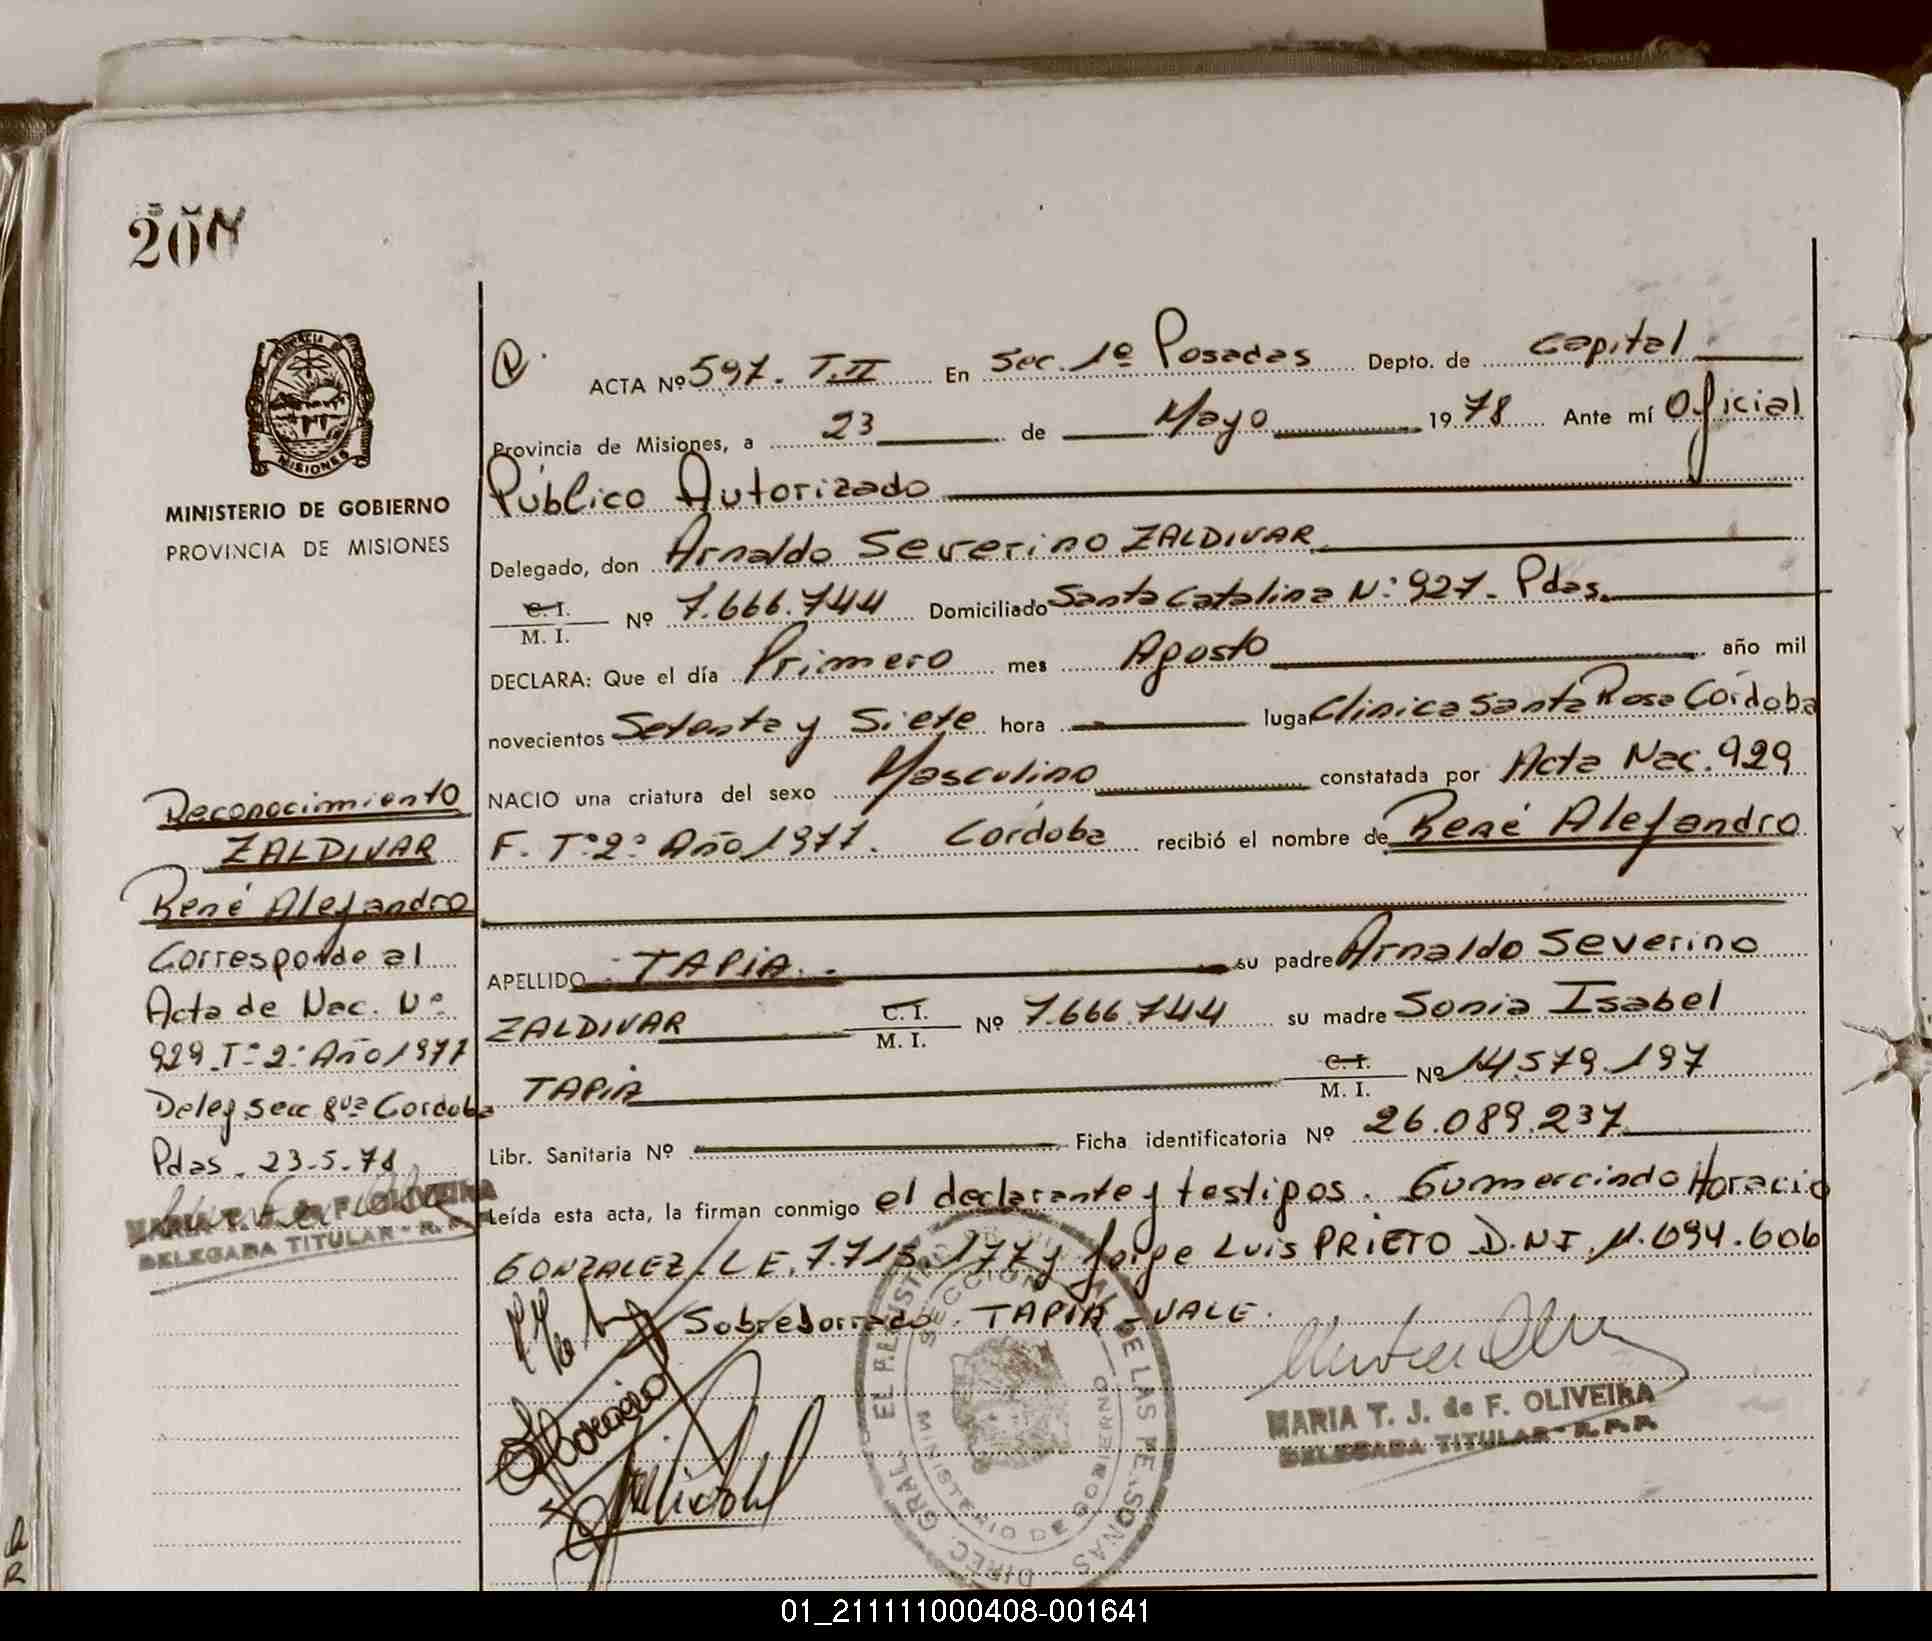 200
MINISTERIO DE GOBIERNO
PROVINCIA DE MISIONES
Reconocimiento
ZALDIVAR
René Alejandro
Corresponde al
Acta de Nac. Nº
929. Tº 2º Año 1977
Deleg. Secc 8va Cordoba
Pdas. 23-5-78
MARIA T. J. de F. OLIVEIRA
DELEGADA TITULAR - R. P. P.
ACTA Nº 597. T.II En Sec. 1º Posadas Depto. de Capital
Provincia de Misiones, a 23 de Mayo 1978 Ante mí Oficial
Público Autorizado
Delegado, don Arnaldo Severino ZALDIVAR
C. I. / M. I. Nº 7.666.744 Domiciliado Santa Catalina N: 927 - Pdas.
DECLARA: Que el día Primero mes Agosto año mil
novecientos Setenta y Siete hora lugar Clinica Santa Rosa Córdoba
NACIO una criatura del sexo Masculino constatada por Acta Nac. 929
F. Tº 2º Año 1977. Cordoba recibió el nombre de René Alejandro
APELLIDO TAPIA. su padre Arnaldo Severino
ZALDIVAR C. I. / M. I. Nº 7.666.744 su madre Sonia Isabel
TAPIA C. I. / M. I. Nº 14.579.197
Libr. Sanitaria Nº Ficha identificatoria Nº 26.089.237
Leída esta acta, la firman conmigo el declarante y testigos. Gumercindo Horacio
GONZALEZ L E. 7.715.177 y Jorge Luis PRIETO D.N.I. 11.694.606
Sobreborrado. TAPIA - VALE.
Horacio
DIREC. GRAL. DE LAS PERSONAS
SECCION
MINISTERIO DE GOBIERNO
MARIA T. J. de F. OLIVEIRA
DELEGADA TITULAR - R. P. P.
01_211111000408-001641